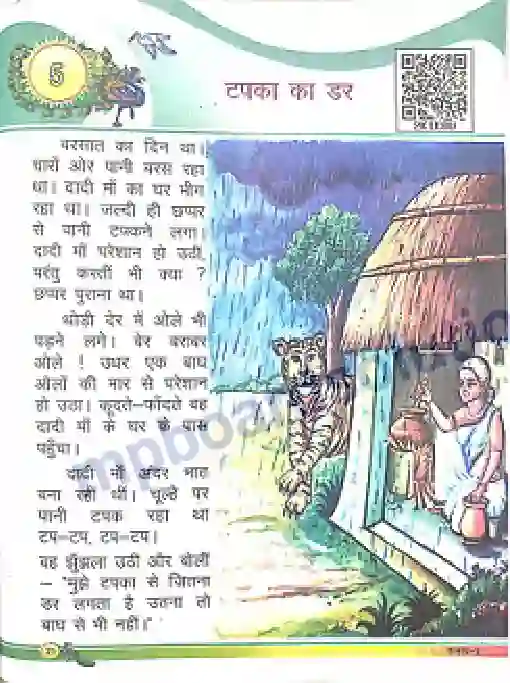 5
टपका का डर
बरसात का दिन था।
चारों ओर पानी बरस रहा
था। दादी माँ का घर भीग
रहा था। जल्दी ही छप्पर
से पानी टपकने लगा।
दादी माँ परेशान हो उठीं,
परंतु करतीं भी क्या ?
छप्पर पुराना था।
थोड़ी देर में ओले भी
पड़ने लगे। बेर बराबर
ओले ! उधर एक बाघ
ओलों की मार से परेशान
हो उठा। कूदते-फाँदते वह
दादी माँ के घर के पास
पहुँचा।
दादी माँ अंदर भात
बना रही थीं। चूल्हे पर
पानी टपक रहा था
टप-टप, टप-टप।
वह झुँझला उठीं और बोलीं
- "मुझे टपका से जितना
डर लगता है उतना तो
बाघ से भी नहीं।"